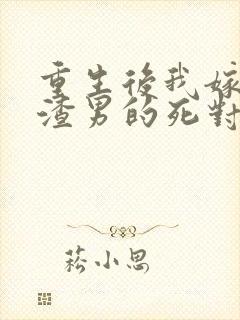 重生後我嫁
渣男的死對
菘小思